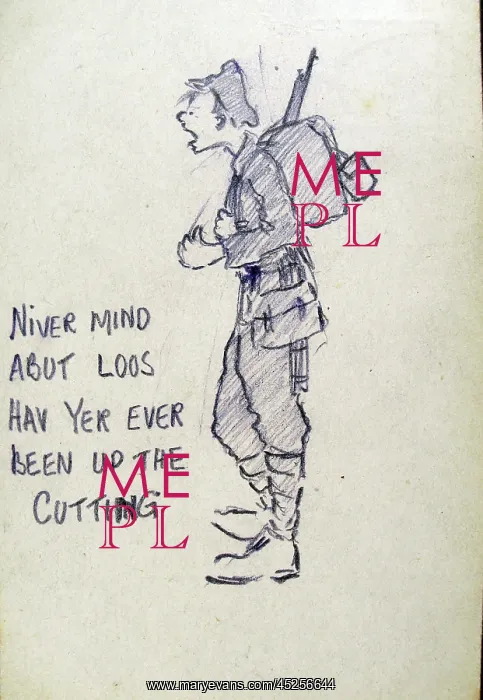 ME
PL
NIVER MIND
ABUT LOOS
HAV YER EVER
BEEN UP THE
CUTTING
ME
PL
www.maryevans.com/45256644